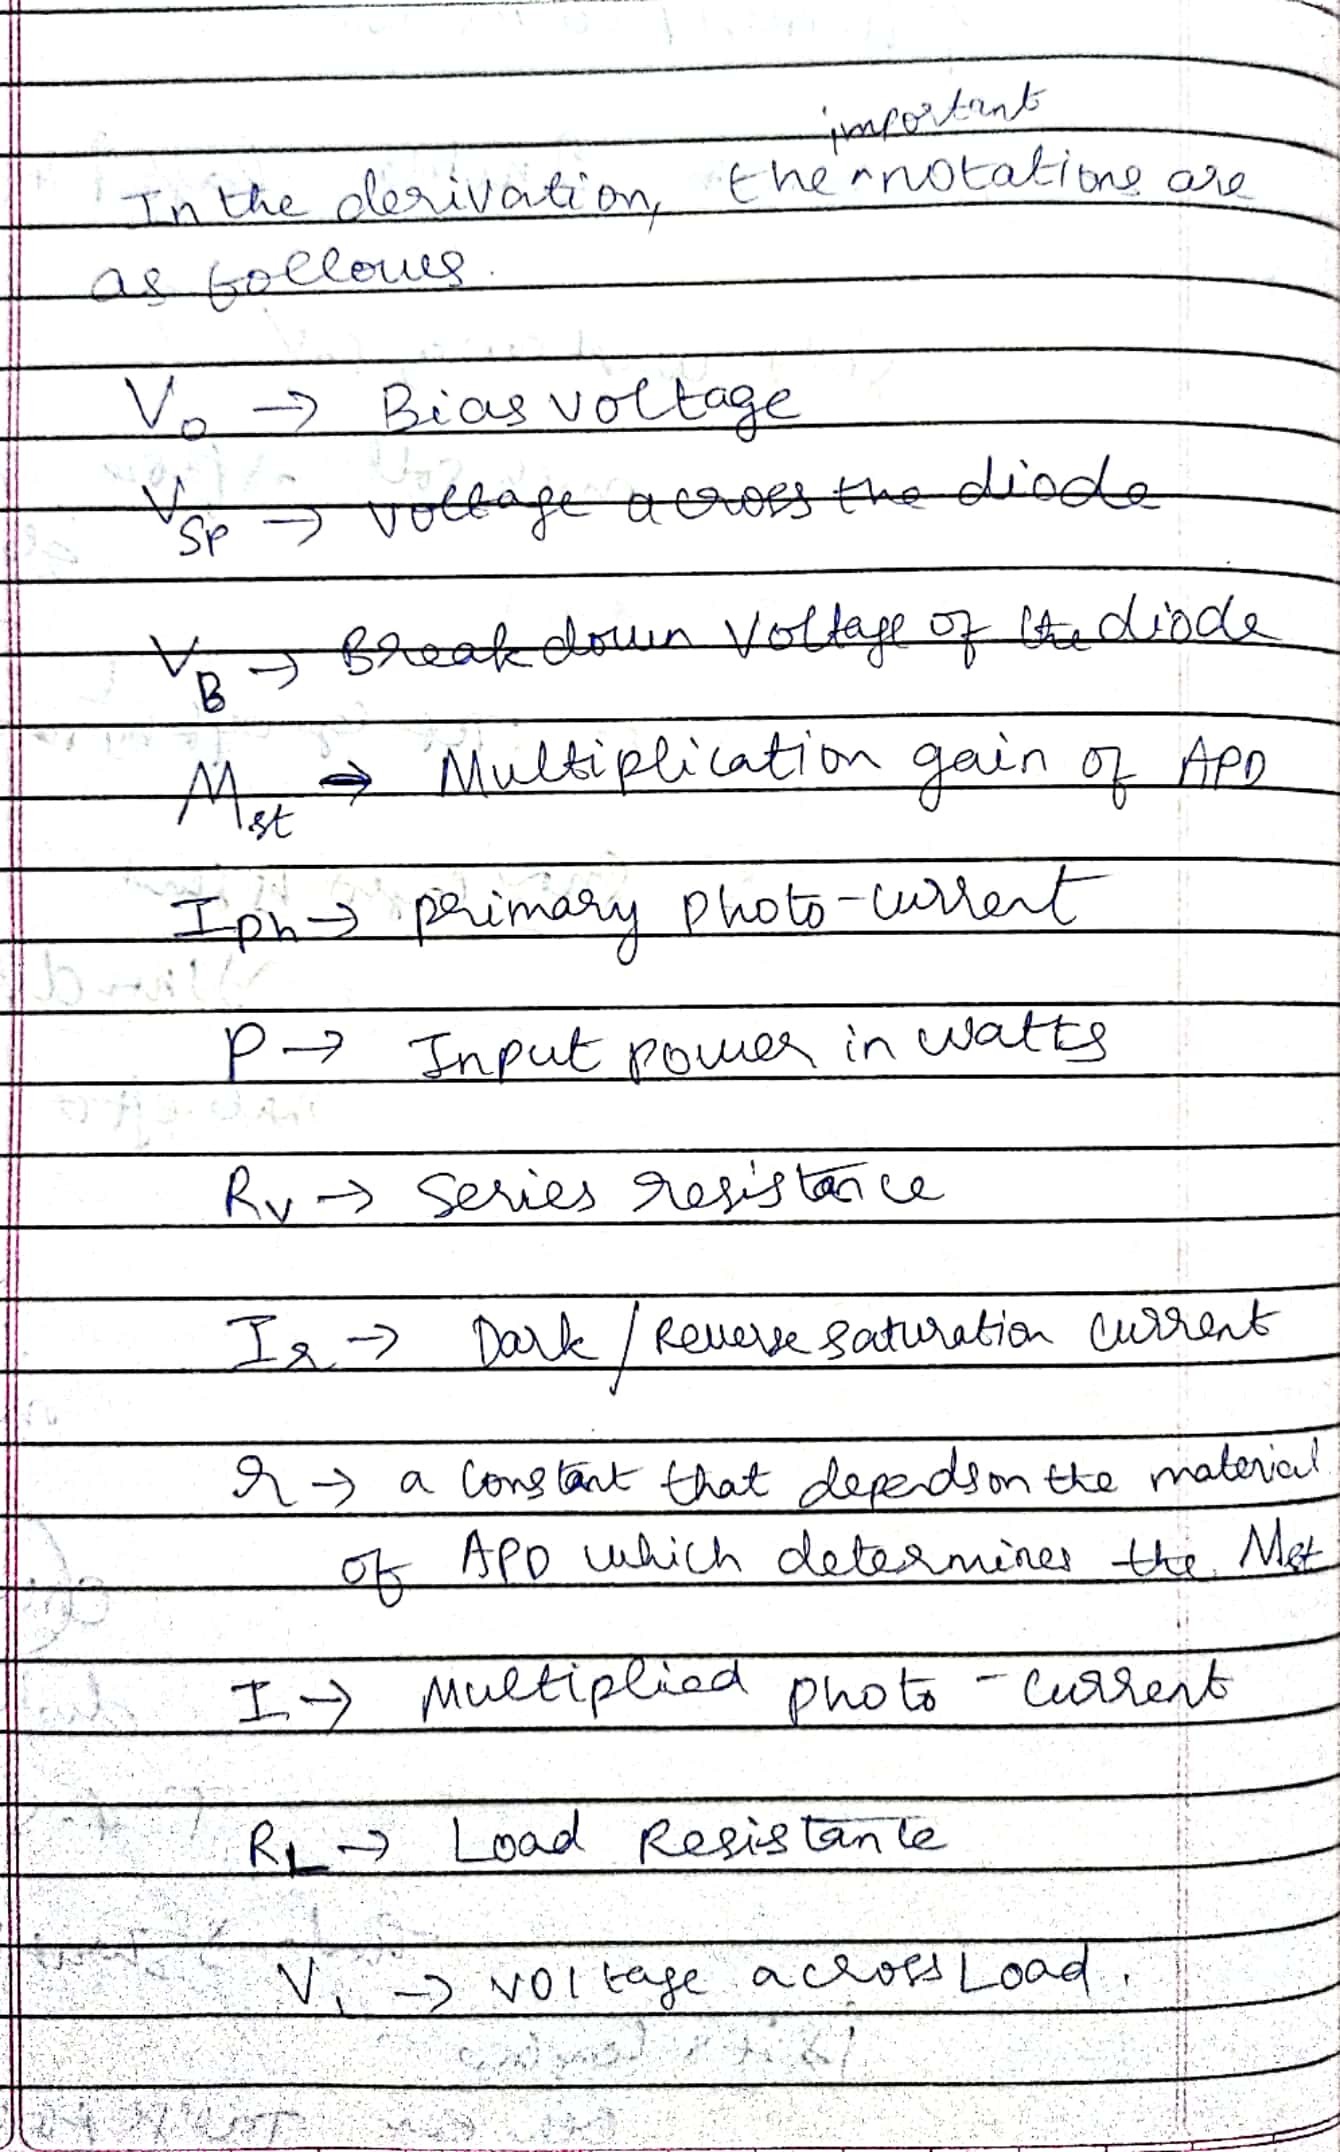 important
In the derivation, the ^ notations are
as follows.
V₀ → Bias voltage
V_SP → voltage across the diode
V_B → Breakdown Voltage of the diode
M_st → Multiplication gain of APD
Iph → primary photo-current
P → Input power in watts
R_v → series resistance
I_r → Dark / Reverse saturation current
r → a constant that depends on the material
of APD which determines the Mst
I → Multiplied photo-current
R_L → Load Resistance
V₁ → voltage across Load.